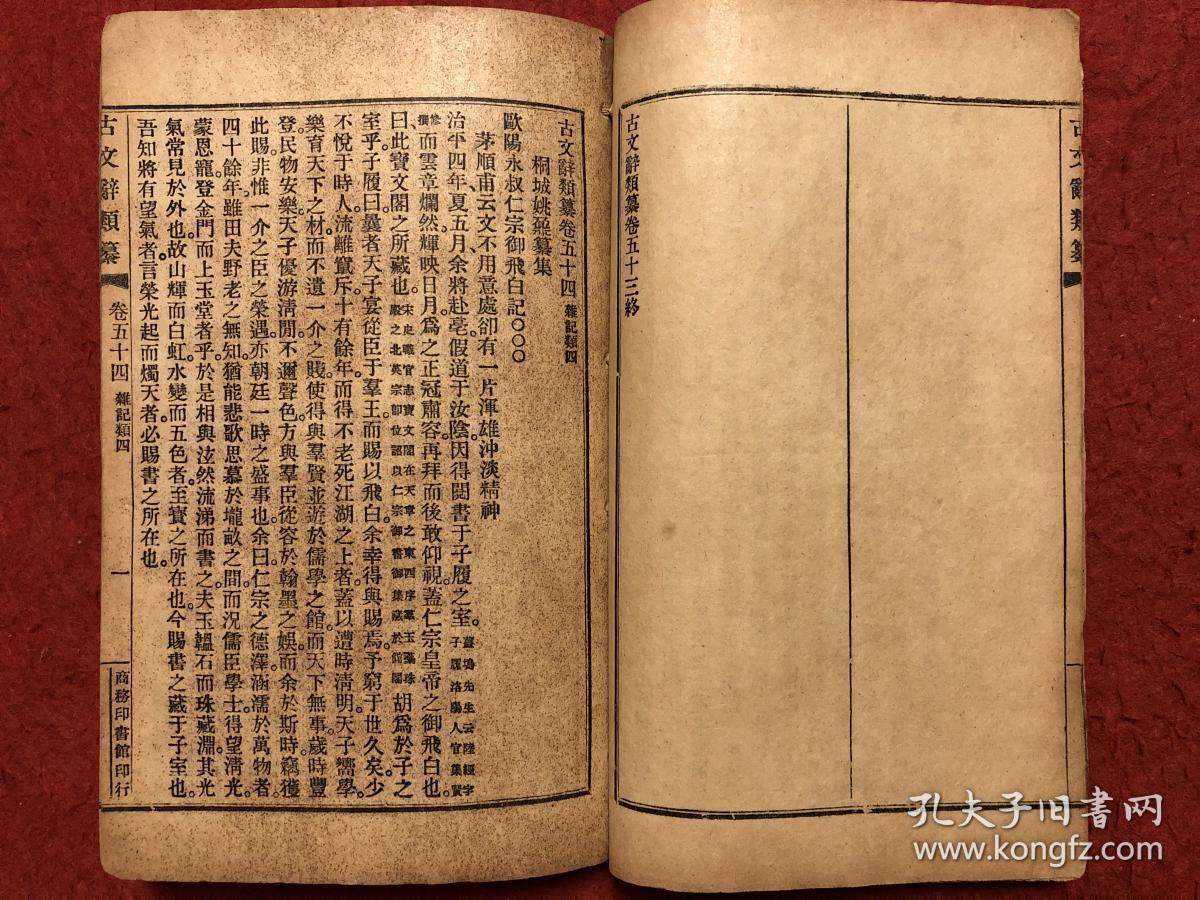 古文辭類纂
古文辭類纂卷五十三終
古文辭類纂卷五十四 雜記類四
桐城姚鼐纂集
歐陽永叔仁宗御飛白記○○○
茅順甫云文不用意處卻有一片渾雄沖淡精神
治平四年夏五月余將赴亳假道于汝陰因得閱書于子履之室。薑塢先生云陸經字子履洛陽人官集賢
修撰而雲章爛然輝映日月爲之正冠肅容再拜而後敢仰視。蓋仁宗皇帝之御飛白也。
曰此寶文閣之所藏也。宋史職官志寶文閣在天章之東西序羣玉蘂珠殿之北英宗卽位詔以仁宗御書御集藏於閣胡爲於子之
室乎子履曰曩者天子宴從臣于羣玉而賜以飛白余幸得與賜焉。予窮于世久矣。少
不悅于時人流離竄斥十有餘年而得不老死江湖之上者蓋以遭時淸明天子嚮學。
樂育天下之材而不遺一介之賤使得與羣賢並遊於儒學之館。而天下無事歲時豐
登民物安樂天子優游淸閒不邇聲色方與羣臣從容於翰墨之娛。而余於斯時竊獲
此賜非惟一介之臣之榮遇亦朝廷一時之盛事也。余曰仁宗之德澤涵濡於萬物者。
四十餘年雖田夫野老之無知猶能悲歌思慕於壠畝之間而況儒臣學士得望淸光。
蒙恩寵登金門而上玉堂者乎。於是相與泫然流涕而書之。夫玉韞石而珠藏淵其光
氣常見於外也。故山輝而白虹水變而五色者至寶之所在也。今賜書之藏于子室也。
吾知將有望氣者言榮光起而燭天者必賜書之所在也。
古文辭類纂 卷五十四 雜記類四 一 商務印書館印行
孔夫子旧书网
www.kongfz.com